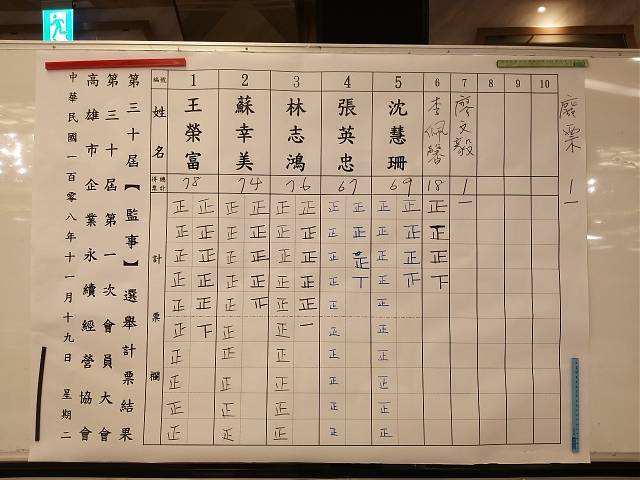 中華民國一百零八年十一月十九日 星期二
高雄市企業永續經營協會
第三十屆第一次會員大會
第三十屆【監事】選舉計票結果
編號 1 2 3 4 5 6 7 8 9 10
姓名 王榮富 蘇幸美 林志鴻 張英忠 沈慧珊 李佩馨 廖文毅 廢票
總計得票 78 74 76 67 69 18 1 1
計票欄
正 正 正 正 正 正 正 正 正 正 正 一 一
正 正 正 正 正 正 正 正 正 正 正
正 正 正 正 正 正 正 正 正 正 正
正 正 正 正 正 正 正 丅 正 正 下
正 正 正 正 正 正 正 正
正 下 正 正 一 正 正
正 正 正 正 正
正 正 正 正 正
正 正 正 正 正
正 正 正 正 正